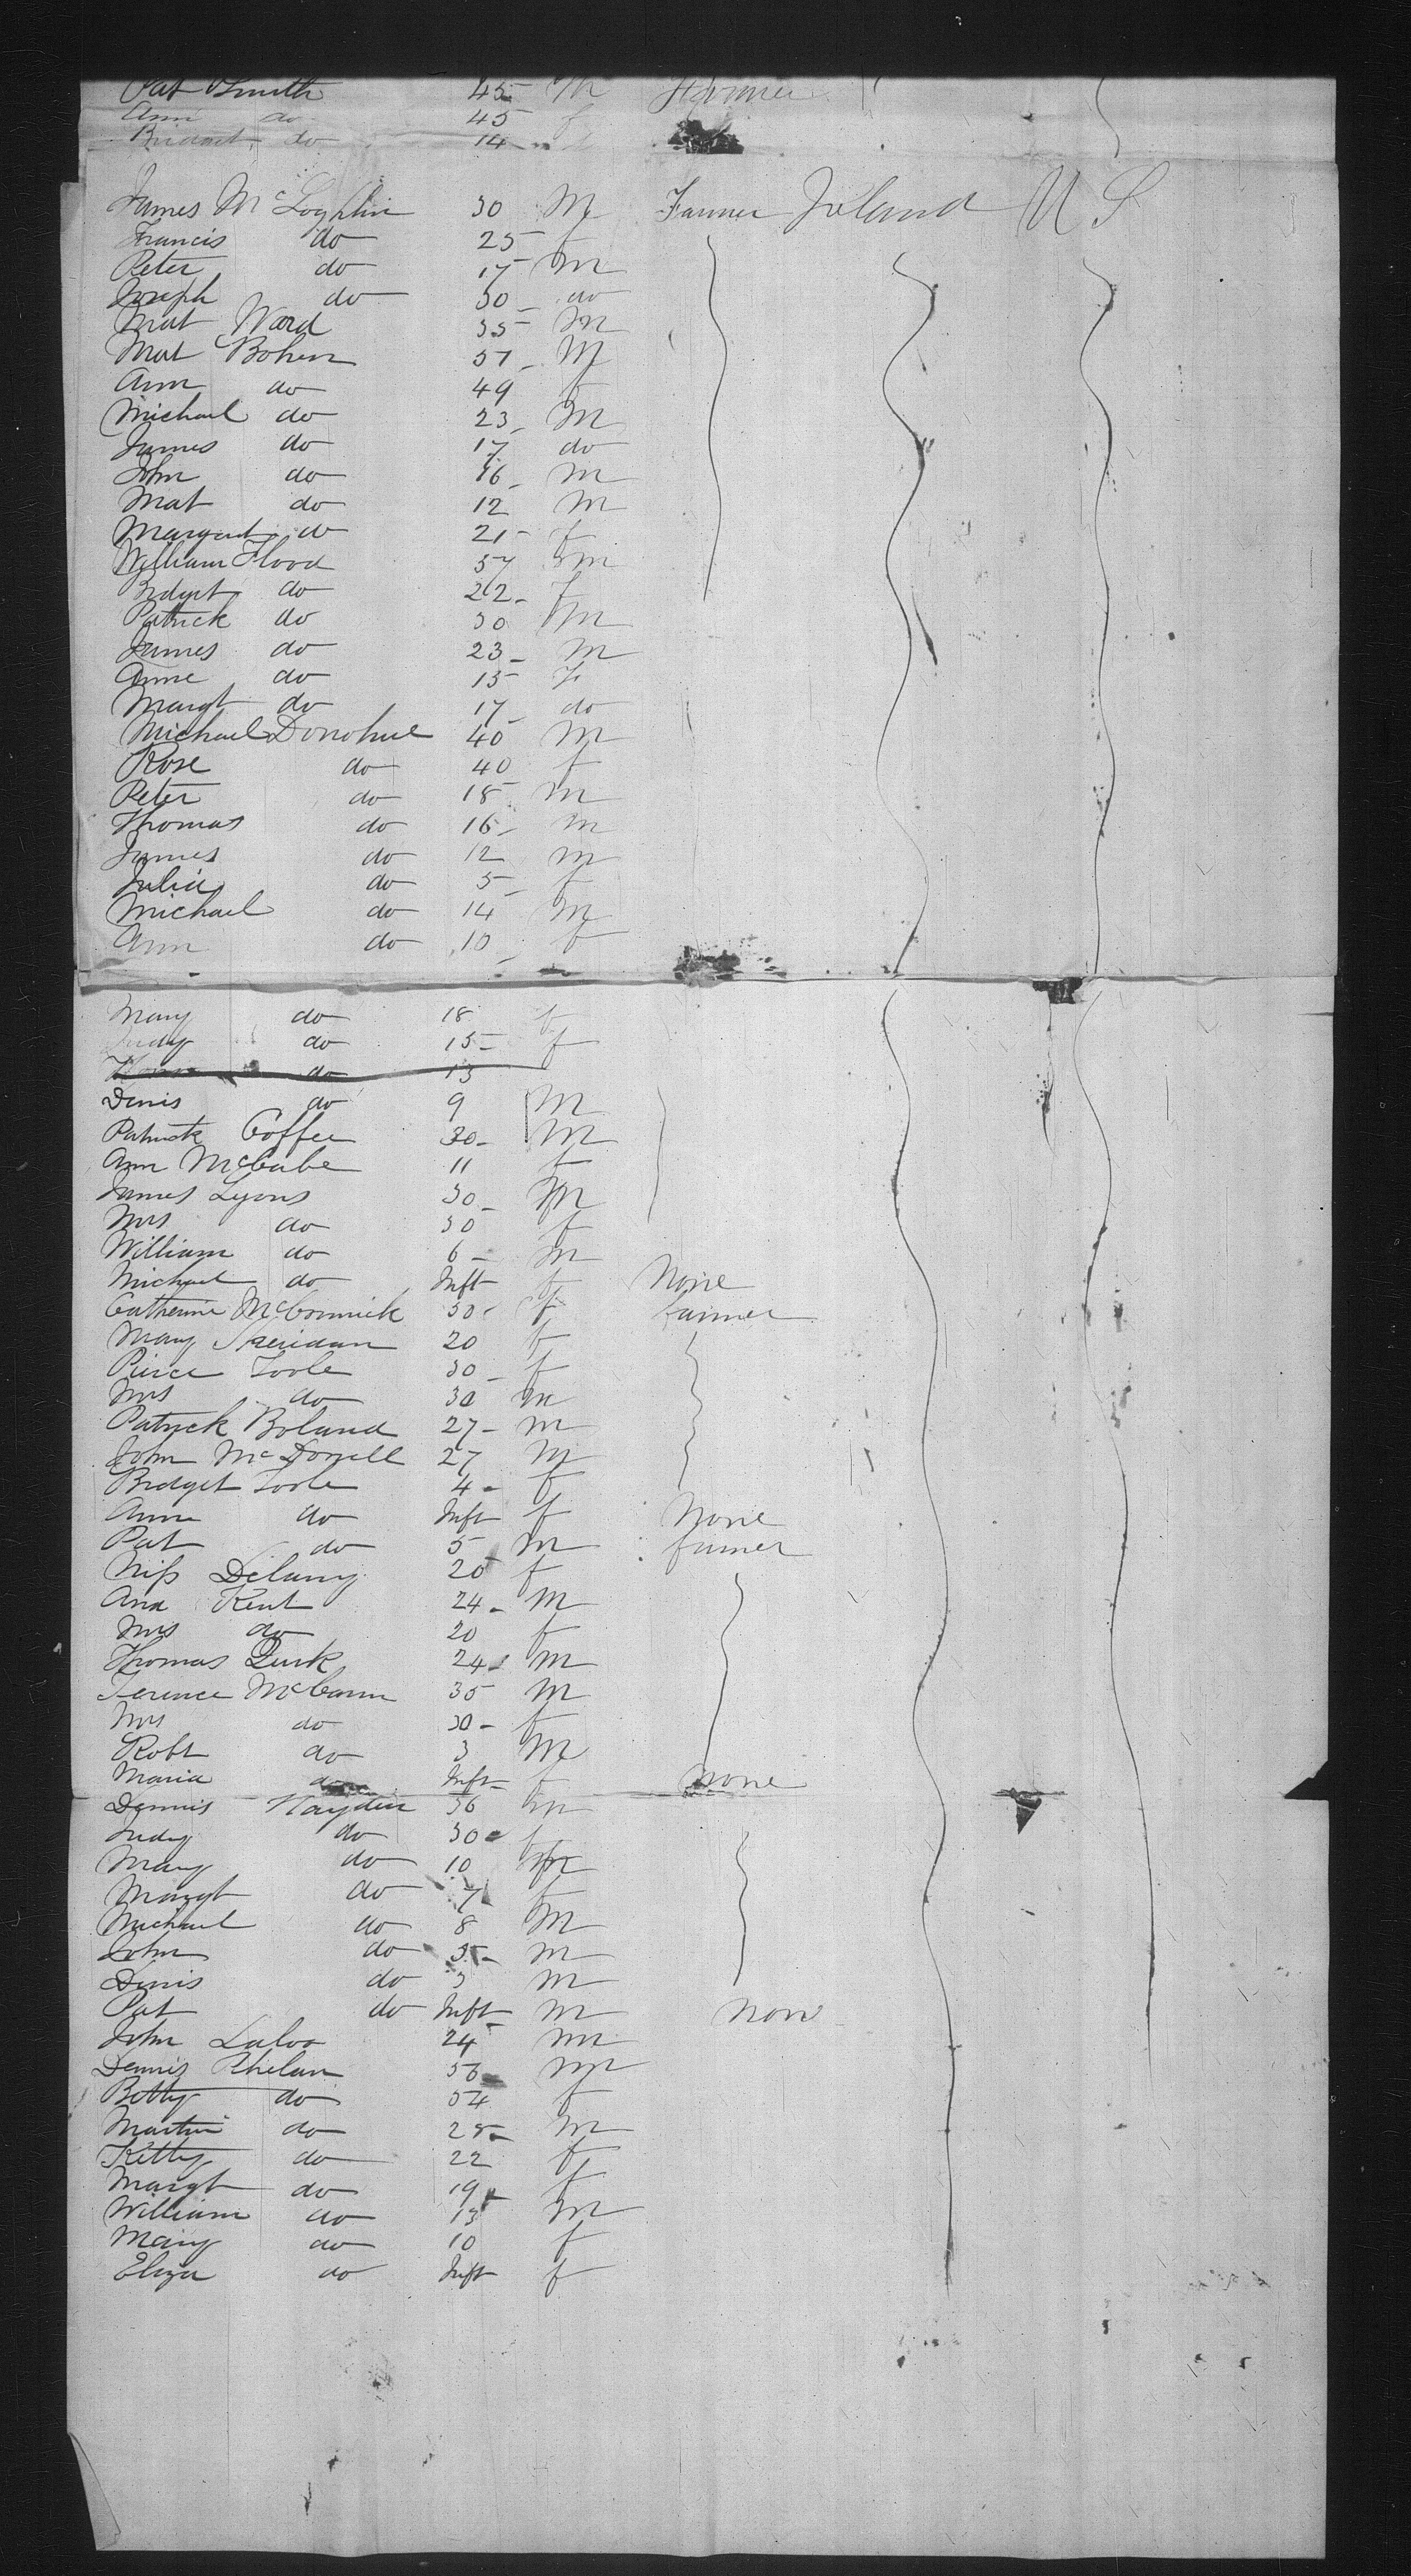 Pat Smith 45 M Farmer
Ann do 45 f
Bridget do 14
James McLoghlin 30 M Farmer Ireland U S
Francis do 25 f
Peter do 17 M
Joseph do 30 do
Mat Ward 35 M
Mat Bohen 57 M
Ann do 49 f
Michael do 23 M
James do 17 do
John do 16 M
Mat do 12 M
Margaret do 21 f
William Flood 57 M
Bridget do 22 f
Patrick do 30 M
James do 23 M
Anne do 15 f
Margt do 17 do
Michael Donohue 40 M
Rose do 40 f
Peter do 18 M
Thomas do 16 M
James do 12 M
Julia do 5 f
Michael do 14 M
Ann do 10 f
Mary do 18 f
Judy do 15 f
do 13
Denis do 9 M
Patrick Coffee 30 M
Ann McCabe 11 f
James Lyons 30 M
Mrs do 30 f
William do 6 M
Michael do Inft f None
Catherine McCormick 50 f farmer
Mary Sheridan 20 f
Pierce Toole 30 f
Mrs do 30 M
Patrick Boland 27 M
John McDonell 27 M
Bridget Toole 4 f
Anne do Inft f None
Pat do 5 M farmer
Miss Delany 20 f
And Kent 24 M
Mrs do 20 f
Thomas Quirk 24 M
Terence McCann 35 M
Mrs do 30 f
Robt do 3 M
Maria do Inft f None
Dennis Hayden 36 M
Judy do 30 f
Mary do 10
Margt do 7 f
Michael do 8 M
John do 5 M
Denis do 3 M
Pat do Inft M Non
John Lalor 24 M
Dennis Phelan 56 M
Betty do 54 f
Martin do 25 M
Kitty do 22 f
Margt do 19 f
William do 13 M
Mary do 10 f
Eliza do Inft f